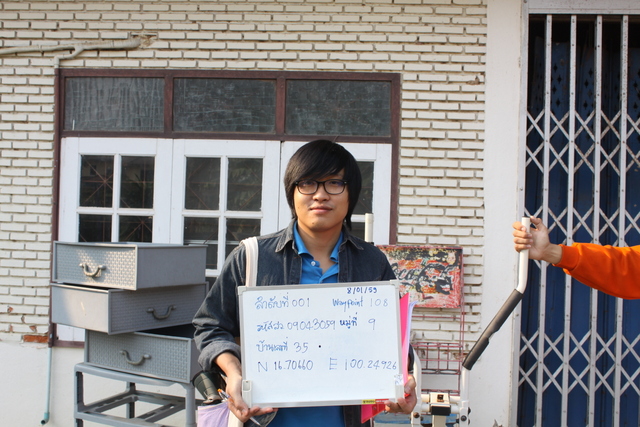 8/01/59
ลำดับที่ 001 Waypoint 108
รหัส 09043059 หมู่ที่ 9
บ้านเลขที่ 35
N 16.70460 E 100.24926